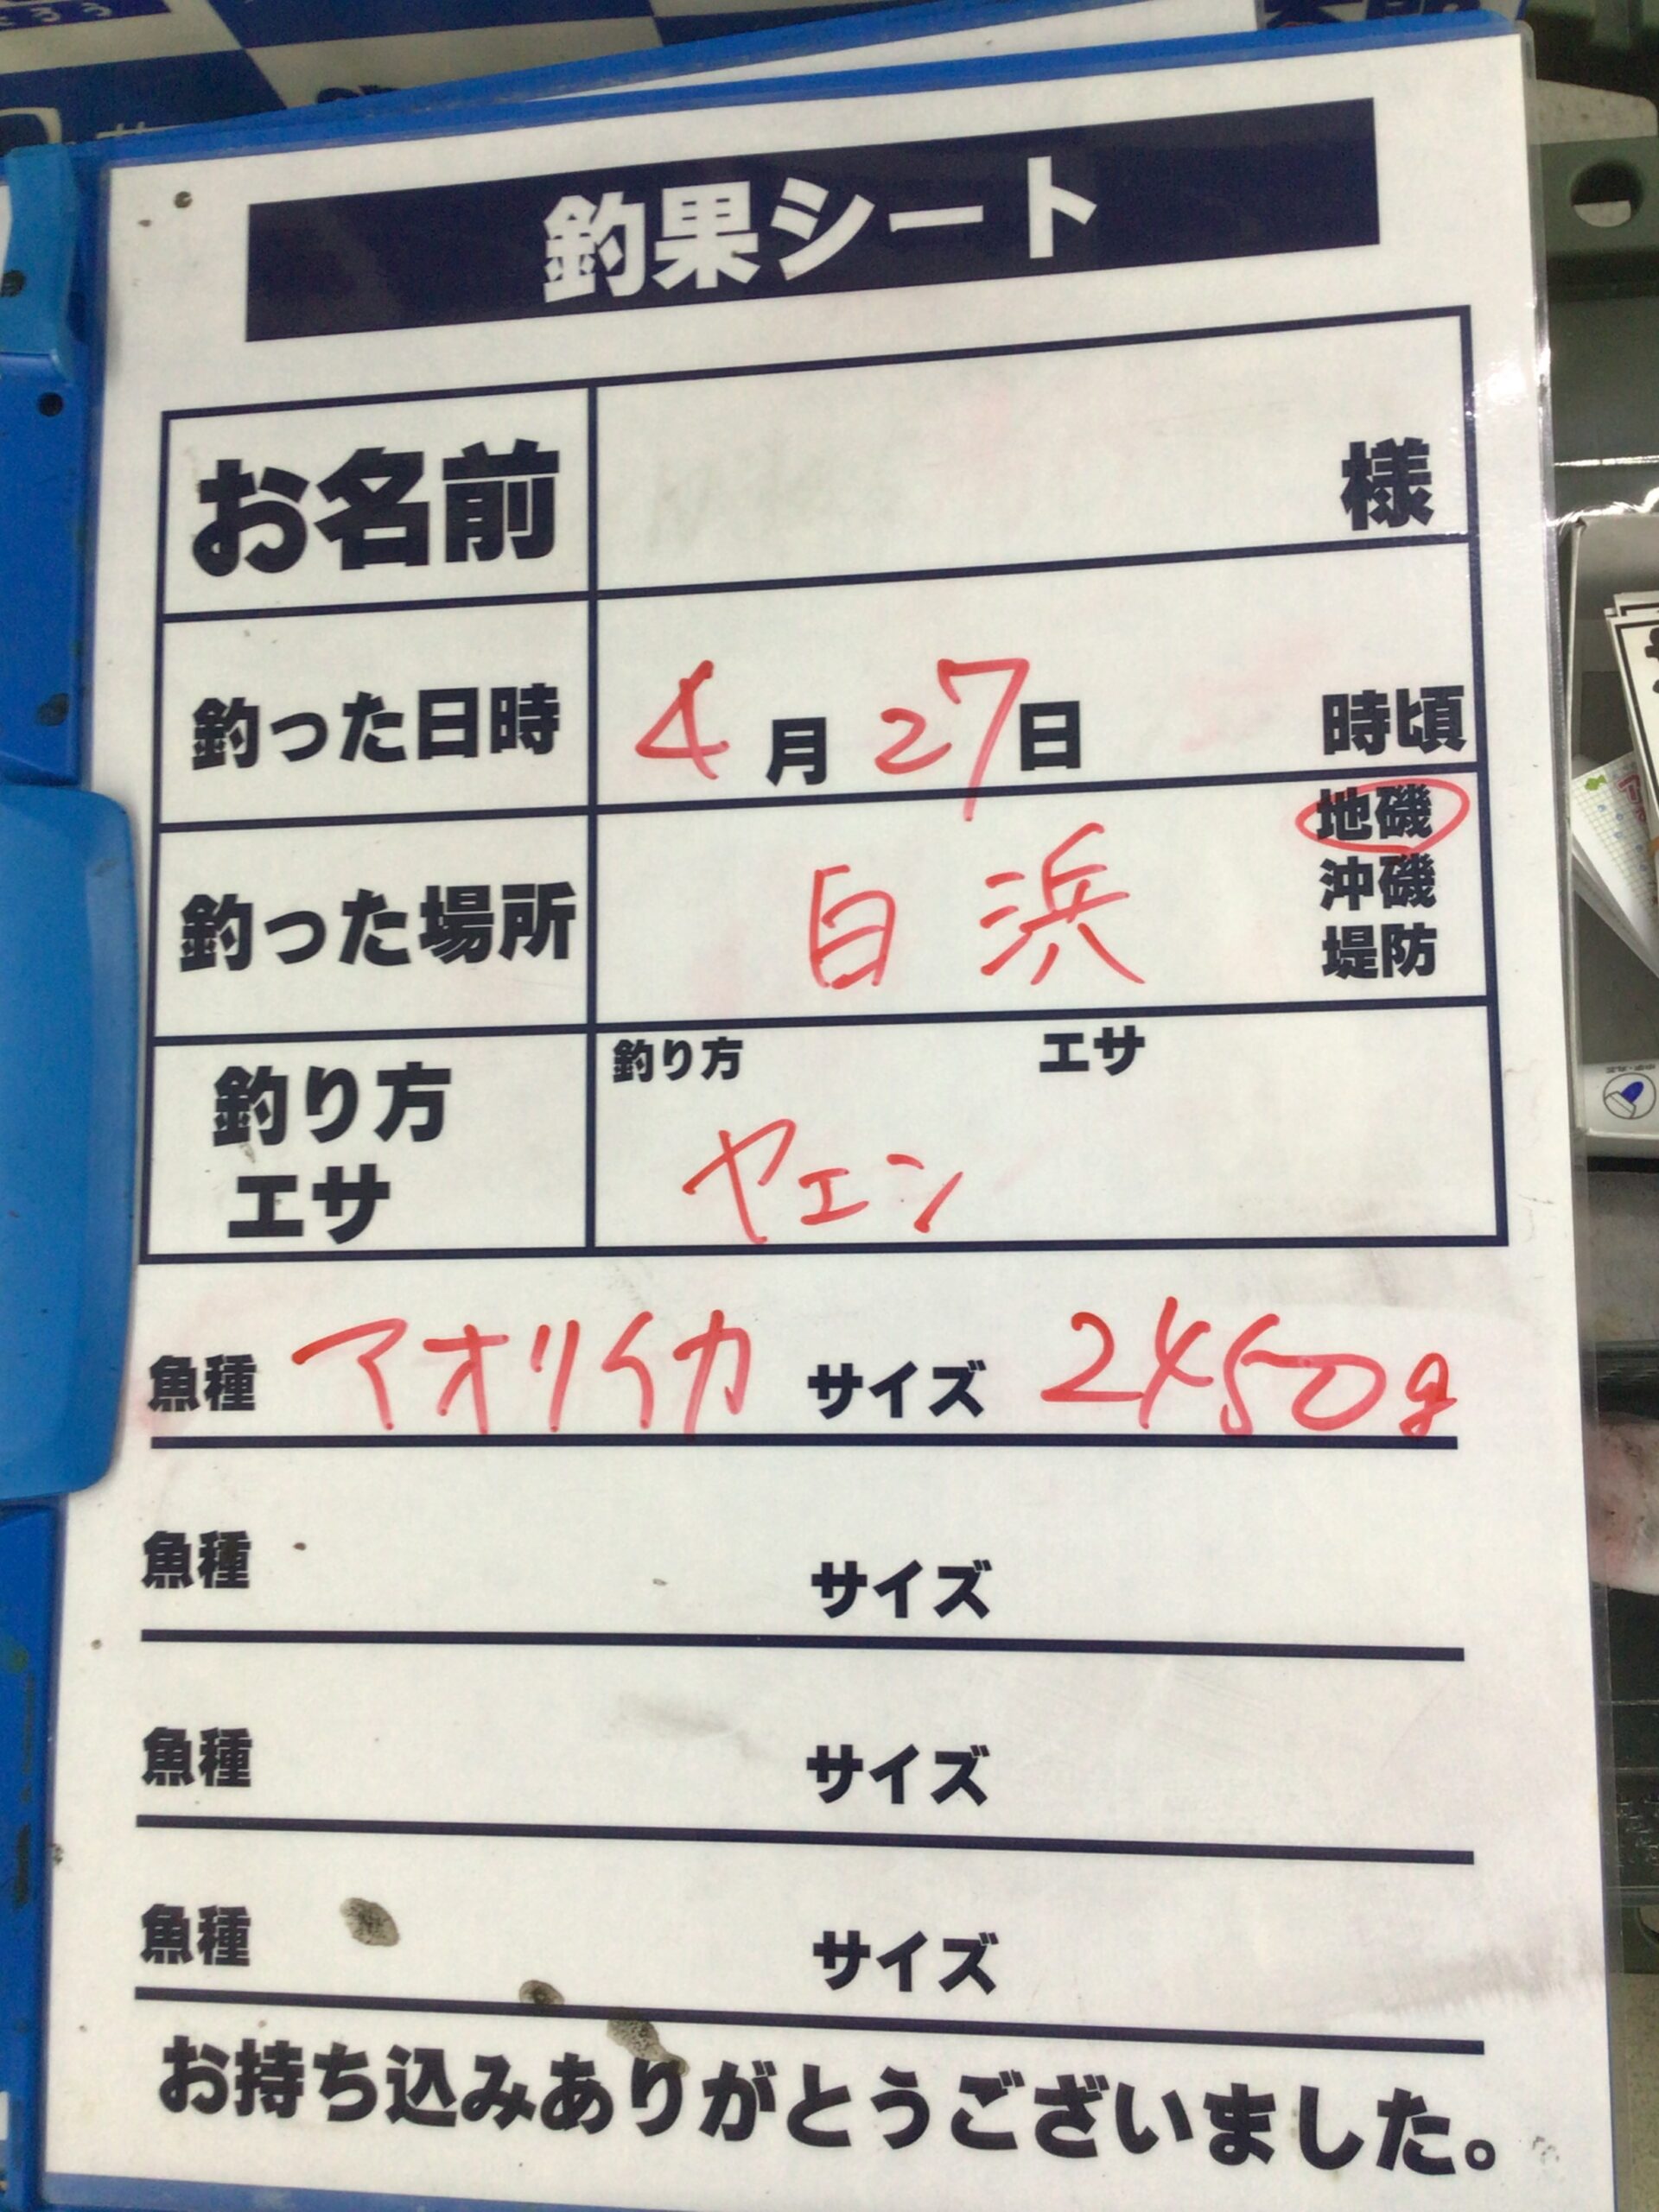 釣果シート
お名前 様
釣った日時 4月27日 時頃
釣った場所 白浜 地磯
沖磯
堤防
釣り方 エサ
釣り方 ヤエン
エサ
魚種 アオリイカ サイズ 2450g
魚種 サイズ
魚種 サイズ
魚種 サイズ
お持ち込みありがとうございました。